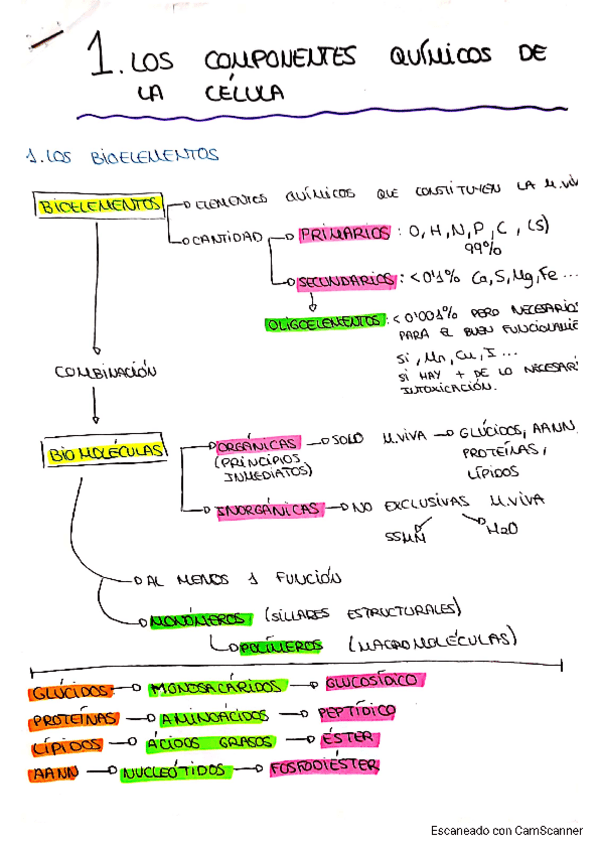 1. LOS COMPONENTES QUÍMICOS DE
LA CÉLULA
1. LOS BIOELEMENTOS
BIOELEMENTOS
ELEMENTOS QUÍMICOS QUE CONSTITUYEN LA M.VIV
CANTIDAD
PRIMARIOS : O, H, N, P, C, (S)
99%
SECUNDARIOS : <0'1% Ca, S, Mg, Fe ...
OLIGOELEMENTOS : <0'001% PERO NECESARIOS
PARA EL BUEN FUNCIONAMIE
Si, Mn, Cu, I ...
SI HAY + DE LO NECESARI
INTOXICACIÓN.
COMBINACIÓN
BIOMOLÉCULAS
ORGÁNICAS SOLO M.VIVA GLÚCIDOS, AANN,
(PRINCIPIOS INMEDIATOS)
PROTEÍNAS,
LÍPIDOS
INORGÁNICAS NO EXCLUSIVAS M.VIVA
SSMN H2O
AL MENOS 1 FUNCIÓN
MONÓMEROS (SILLARES ESTRUCTURALES)
POLÍMEROS (MACROMOLÉCULAS)
GLÚCIDOS MONOSACÁRIDOS GLUCOSÍDICO
PROTEÍNAS AMINOÁCIDOS PEPTÍDICO
LÍPIDOS ÁCIDOS GRASOS ÉSTER
AANN NUCLEÓTIDOS FOSFODIÉSTER
Escaneado con CamScanner